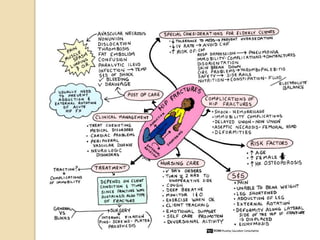 AVASCULAR NECROSIS
NONUNION
DISLOCATION
THROMBOSIS
FAT EMBOLISM
CONFUSION
PARALYTIC ILEUS
INFECTION → TEMP
SES OF SHOCK
BLEEDING
↳ DRAINAGE
SPECIAL CONSIDERATIONS FOR ELDERLY CLIENTS
↓ TOLERANCE TO MEDS → PREVENT OVERSEDATION
↓ IV RATE → AVOID CHF
↑ RISK OF CHF
RESP. DEPRESSION → PNEUMONIA
IMMOBILITY COMPLICATIONS → CONTRACTURES
DISORIENTATION
SKIN BREAK DOWN
CIRC PROBLEMS → THROMBOPHLEBITIS
SAFETY → SIDE RAILS
NUTRITION → CONSTIPATION → FLUID
ELECTROLYTE
BALANCE
POST OP CARE
HIP FRACTURES
COMPLICATIONS OF
HIP FRACTURES
SHOCK - HEMORRHAGE
IMMOBILITY COMPLICATIONS
DELAYED UNION - NON UNION
ASEPTIC NECROSIS - FEMORAL HEAD
DEFORMITIES
CLINICAL MANAGEMENT
TREAT COEXISTING
MEDICAL DISORDERS
CARDIAC PROBLEMS
PERIPHERAL
VASCULAR DISEASE
NEUROLOGIC
DISORDERS
RISK FACTORS
↑ AGE
↑ FEMALE
↑ HX OSTEOPOROSIS
TREATMENT
TRACTION
COMPLICATIONS
OF IMMOBILITY
DEPENDS ON CLIENT
CONDITION & TIME
SINCE FRACTURE WAS
SUSTAINED AND TYPE
OF FRACTURE
SURGERY
GENERAL
VS
BLOCKS
INTERNAL FIXATION
PINS - SCREWS - PLATES
PROSTHESIS
NURSING CARE
TURN Q 2 HRS TO
INOPERATIVE SIDE
COUGH
DEEP BREATHE
MONITOR I&O
EXERCISE WHEN OR
CLIENT TRACTION
EMOTIONAL SUPPORT
SELF CARE PROMOTION
DIVERSIONAL ACTIVITY
SES
PAIN
UNABLE TO BEAR WEIGHT
LEG SHORTENED
ABDUCTION OF LEG
EXTERNAL ROTATION
DEFORMITY ALONG LATERAL
SIDE OF THE HIP IF FRACTURE
IS DISPLACED
ECCHYMOSIS